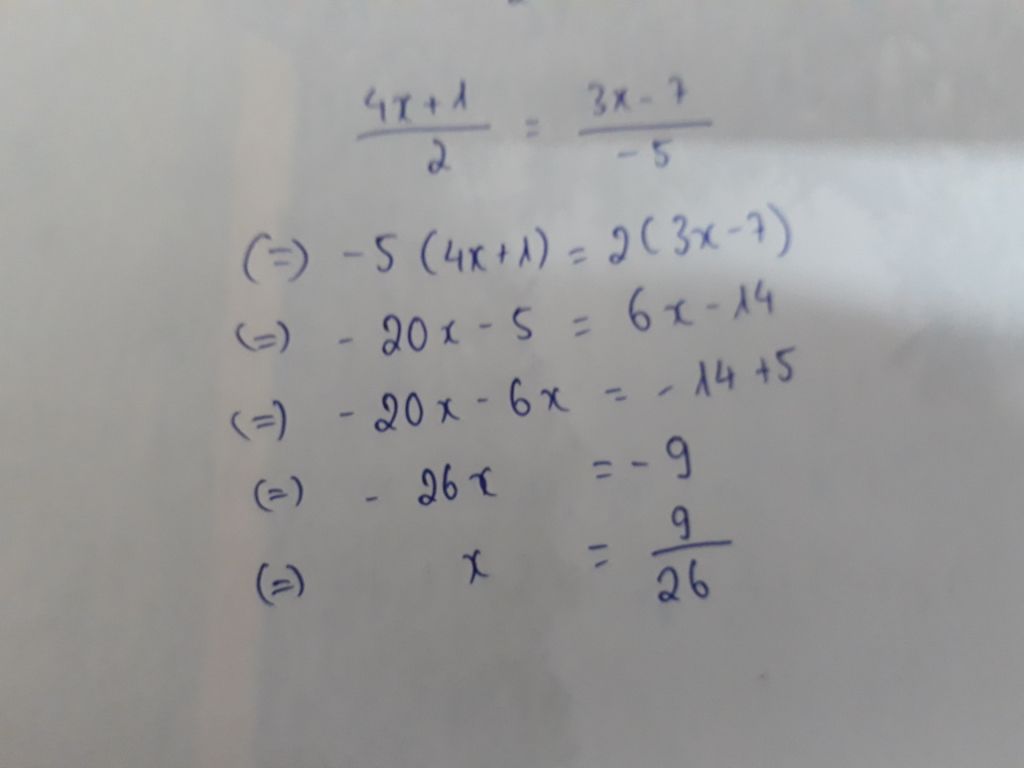 (4x+1)/2 = (3x-7)/-5
(=) -5 (4x+1) = 2(3x-7)
(=) - 20x - 5 = 6x - 14
(=) - 20x - 6x = - 14 +5
(=) - 26x = - 9
(=) x = 9/26